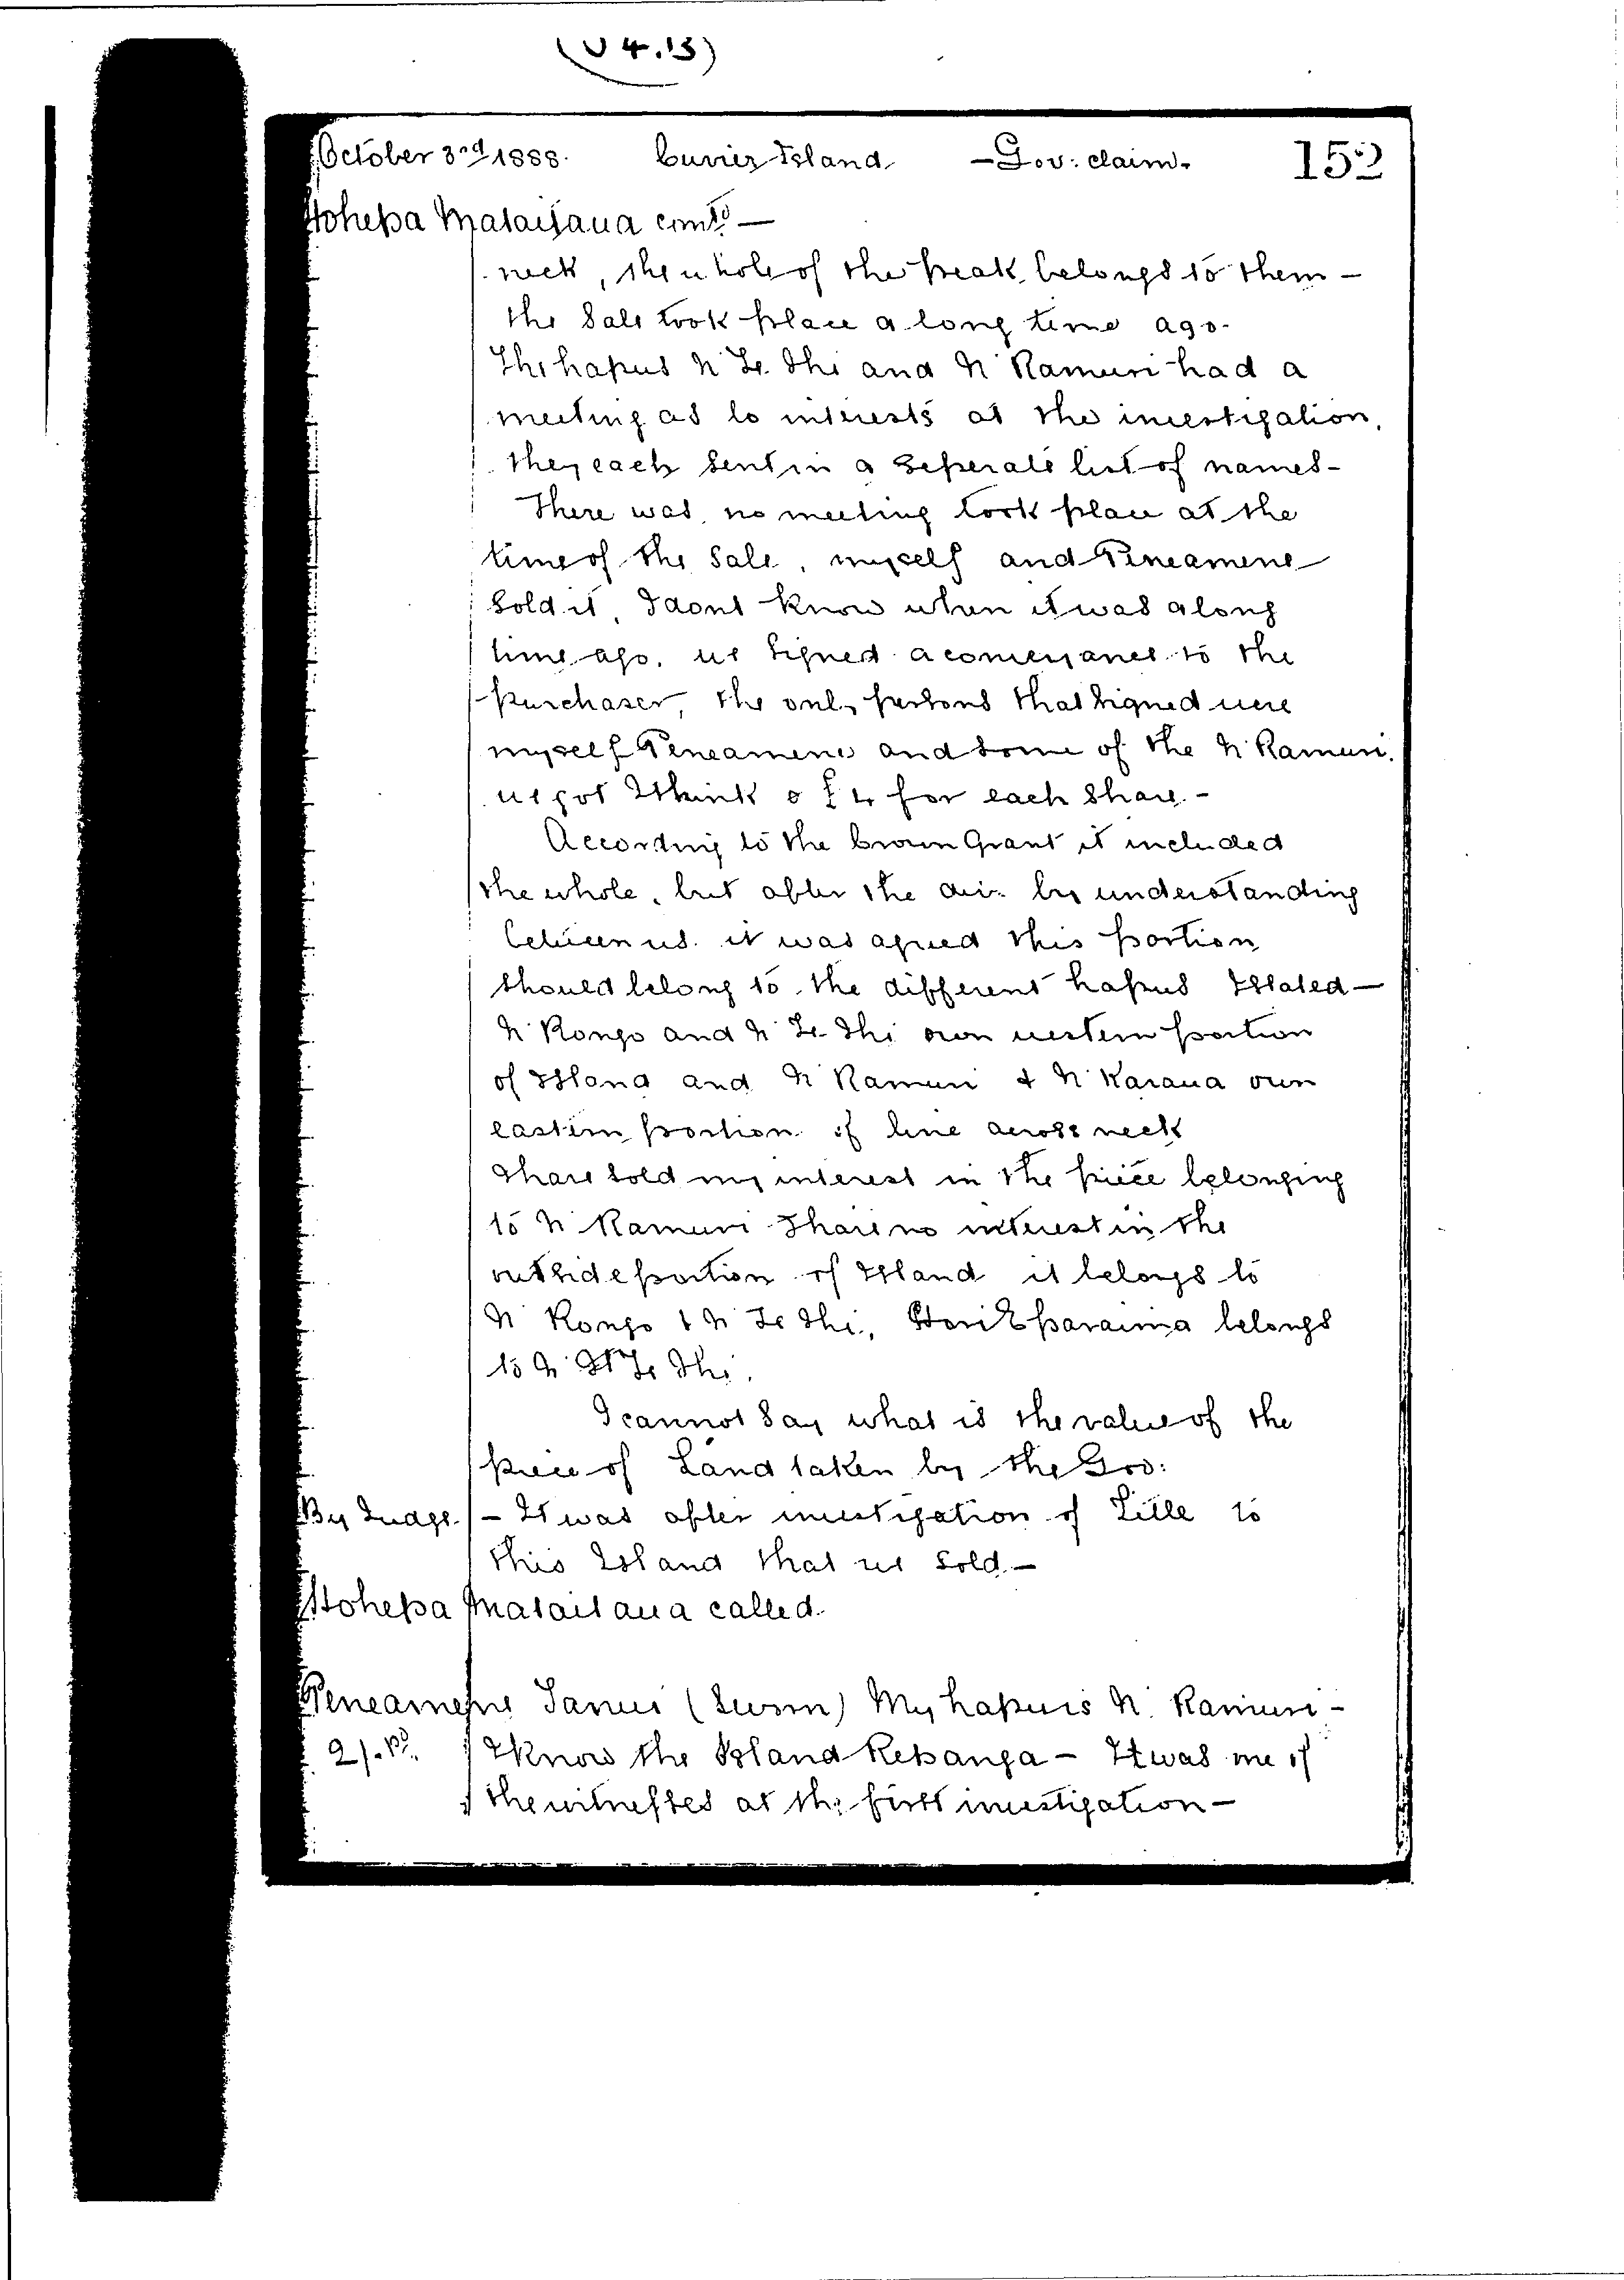 (V 4.13)
October 3rd 1888. Cuvier Island - Gov: claim - 152
Hohepa Mataitaua contd -
neck, the whole of the peak belongs to them -
the Sale took place a long time ago -
The hapus N Te Ihi and N Ramuri had a
meeting as to interests at the investigation,
they each sent in a seperate list of names -
There was no meeting took place at the
time of the Sale, myself and Peneamene
Sold it, I dont know when it was a long
time ago, we signed a conveyance to the
purchaser, the only persons that signed were
myself Peneamene and some of the N Ramuri.
we got I think £4 for each share. -
According to the Crown Grant it included
the whole, but after the by understanding
between us. it was agreed this portion
should belong to the different hapus I stated -
N Rongo and N Te Ihi own western portion
of Island and N Ramuri & N Karaua own
eastern portion of line across neck
I have sold my interest in the piece belonging
to N Ramuri I have no interest in the
outside portion of Island it belongs to
N Rongo & N Te Ihi, belongs
to N Te Ihi.
I cannot say what is the value of the
piece of Land taken by the Gov:
By Judge. - It was after investigation of Title to
this Island that we Sold. -
Hohepa Mataitaua called.
Peneamene Tanui (Sworn) My hapu is N. Ramuri -
I know the Island Repanga - It was me of
the witnesses at the first investigation -